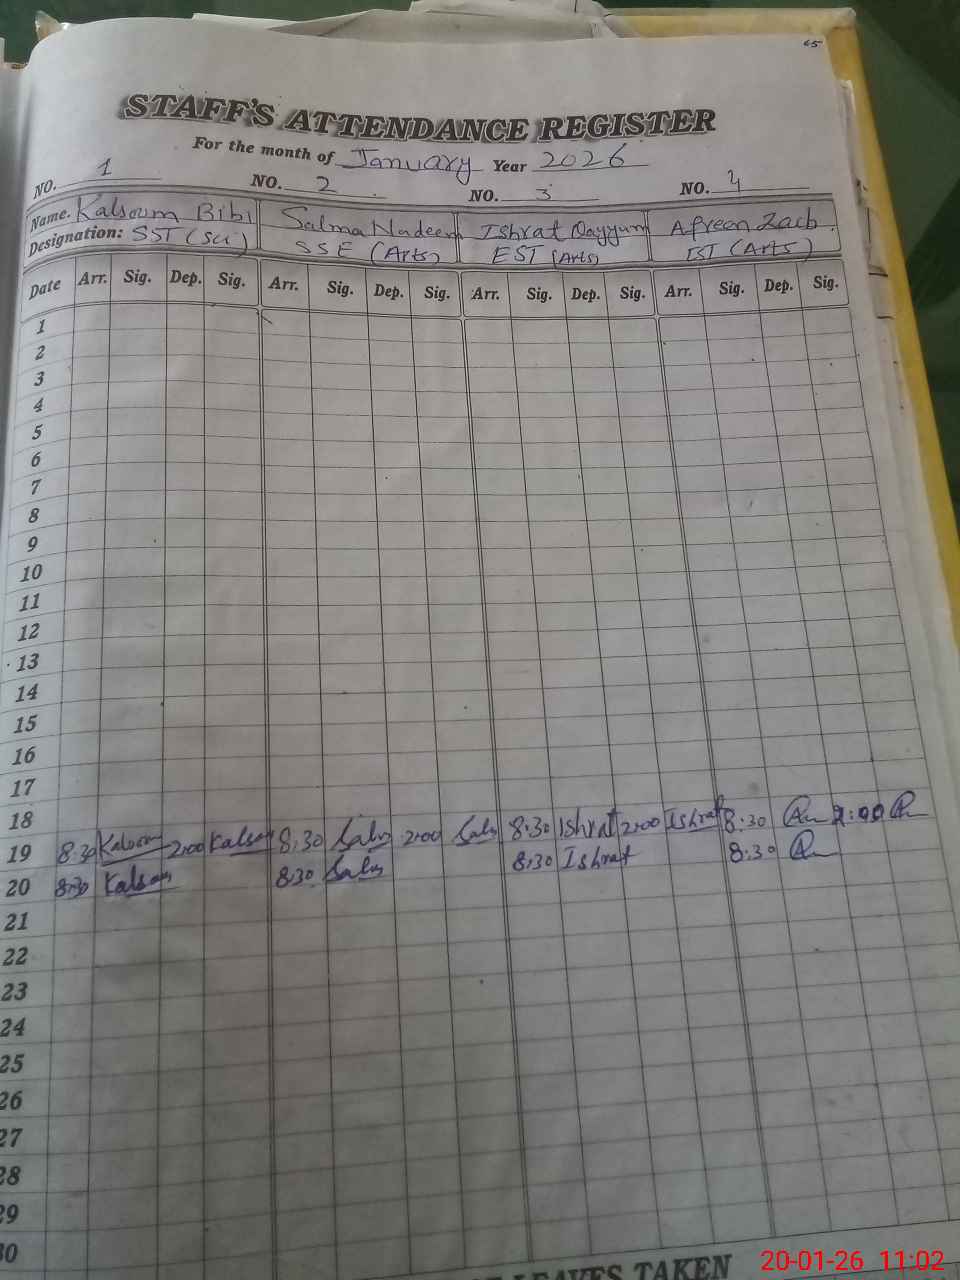 65
STAFF'S ATTENDANCE REGISTER
For the month of January Year 2026
NO. 1 NO. 2 NO. 3 NO. 4
Name. Kalsoom Bibi Salma Nadeem Ishrat Qayyum Afreen Zaib
Designation: SST (Sci) SSE (Arts) EST (Arts) EST (Arts)
Date Arr. Sig. Dep. Sig. Arr. Sig. Dep. Sig. Arr. Sig. Dep. Sig. Arr. Sig. Dep. Sig.
1
2
3
4
5
6
7
8
9
10
11
12
13
14
15
16
17
18
19 8:30 Kalsoom 2:00 Kalsoom 8:30 Salm 2:00 Salm 8:30 Ishrat 2:00 Ishrat 8:30 2:00
20 8:30 Kalsoom 8:30 Salm 8:30 Ishrat 8:30
21
22
23
24
25
26
27
28
29
30
LEAVES TAKEN
20-01-26 11:02